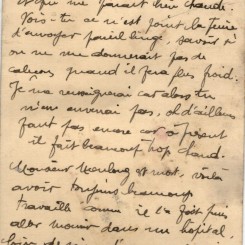 et que me paraît bien chaude.
Vois-tu ce n'est point la peine
d'envoyer pareil linge, savoir si
on ne me donnerait pas de
caleçons quand il fera plus froid.
Je me renseignerai car alors tu
n'en enverrai pas, et d'ailleurs
faut pas encore car à présent
il fait beaucoup trop chaud.
Monsieur est mort, voilà
avoir toujours beaucoup
travaillé comme il l'a fait puis
aller mourir dans un hôpital,